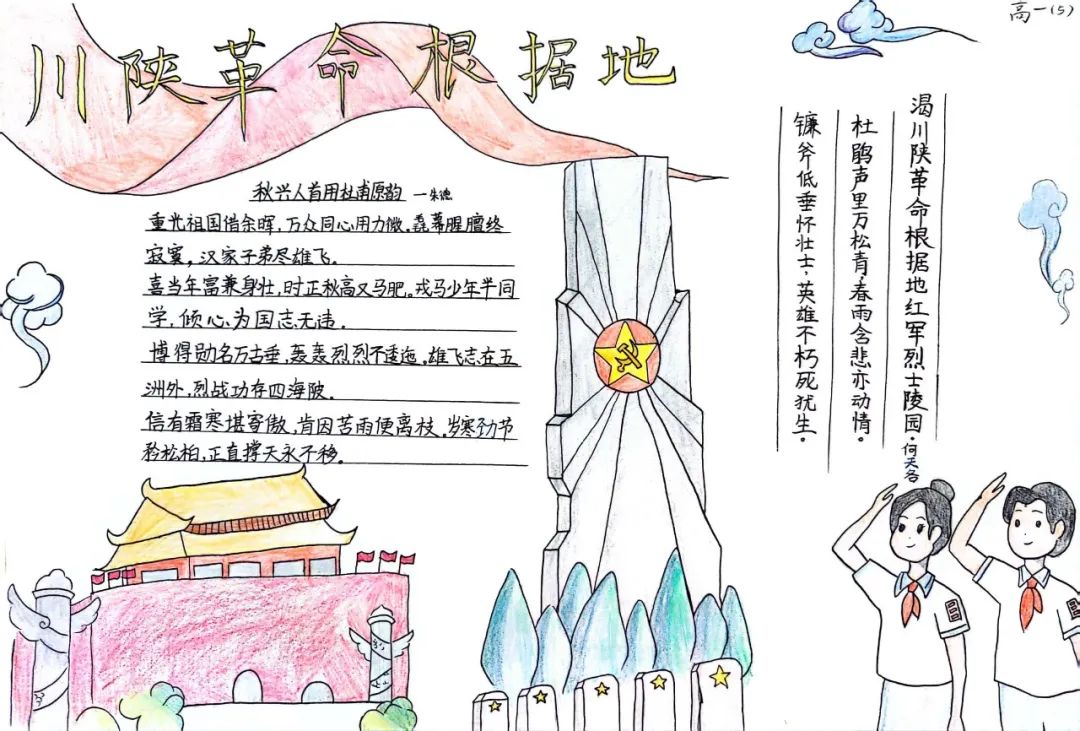 高一(5)
川陕革命根据地
秋兴人首用杜甫原韵 —朱德
重光祖国借余晖,万众同心用力微。羶幕腥膻终
寂寞,汉家子弟尽雄飞.
喜当年富兼身壮,时正秋高又马肥。戎马少年半同
学,倾心为国志无违.
博得勋名万古垂,轰轰烈烈不逶迤。雄飞志在五
洲外,烈战功存四海陂。
信有霜寒堪寄傲,肯因苦雨便离枝。岁寒劲节
矜松柏,正直撑天永不移。
渴川陕革命根据地红军烈士陵园·何天谷
杜鹃声里万松青,春雨含悲亦动情。
镰斧低垂怀壮士,英雄不朽死犹生。